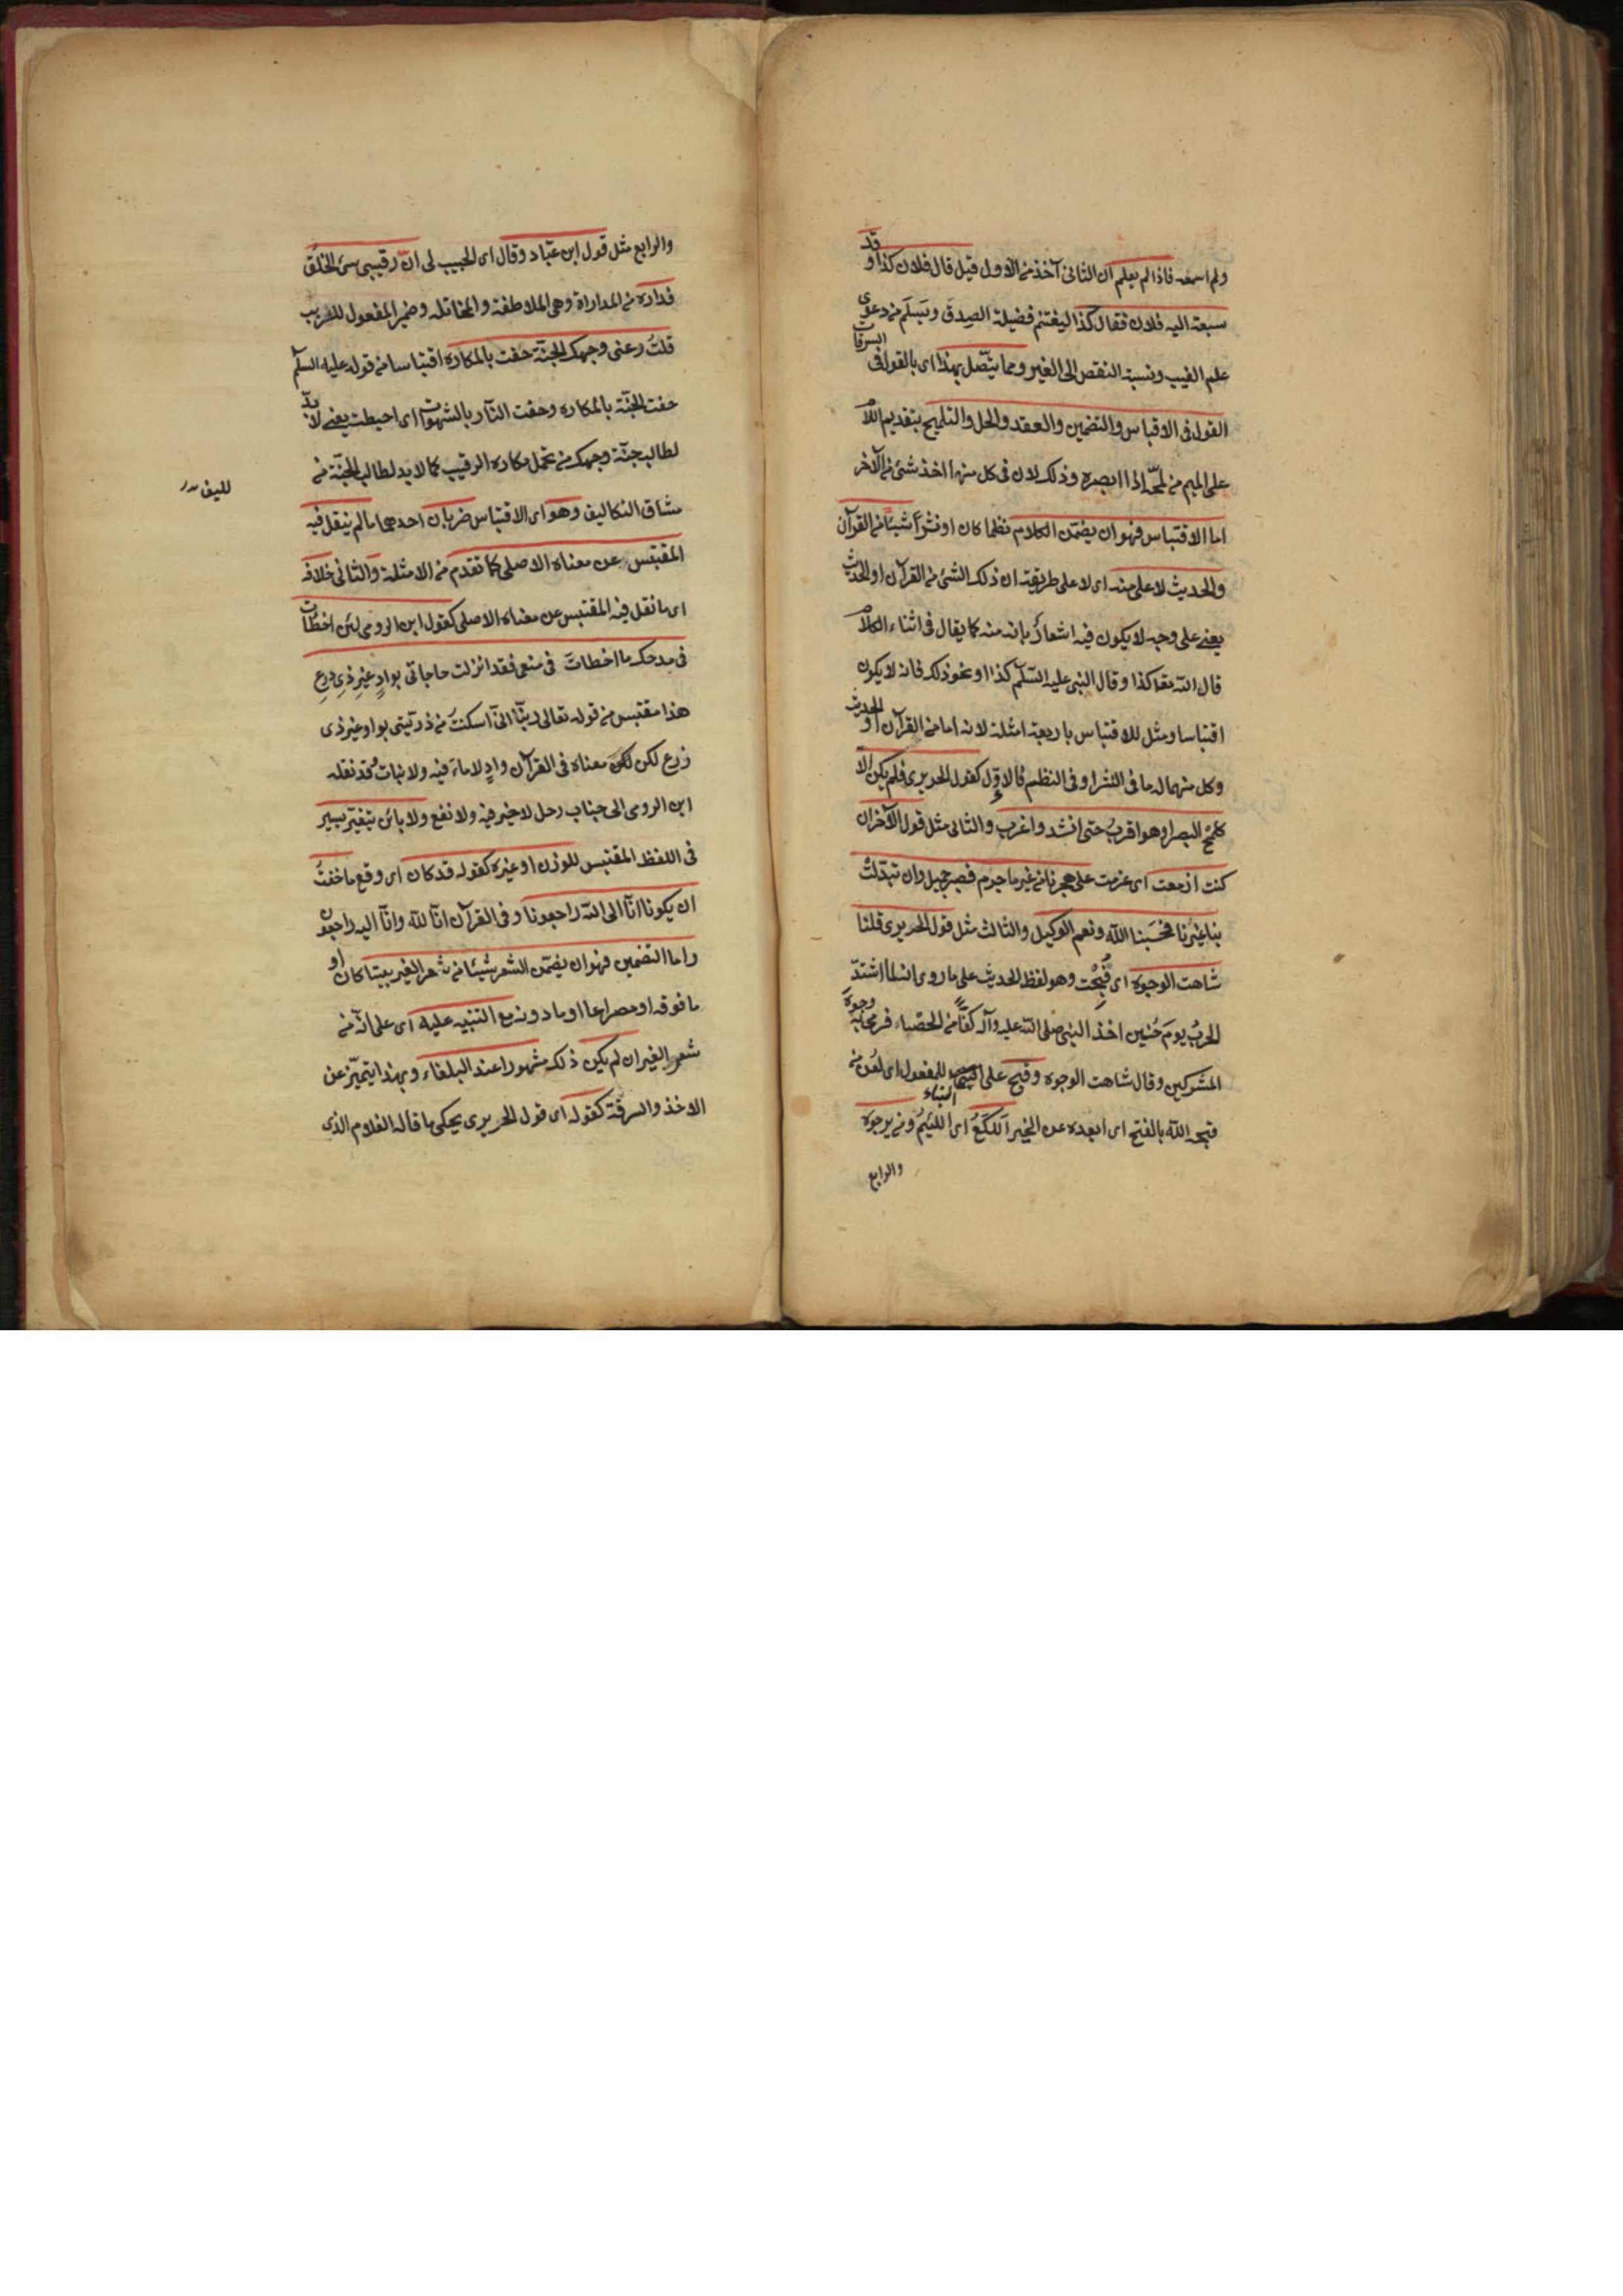 ولم اسمعه فاذا لم يعلم ان الثانى آخذ من الاول قيل قال فلان كذا وقد
سبقه اليه فلان فقال كذا ليغتنم فضيلة الصدق ويسلم من دعوى
علم الغيب ونسبة النقص الى الغير ومما يتصل بهذا اى بالقول فى السرقات
القول فى الاقتباس والتضمين والعقد والحل والتلميح بتقديم اللام
على الميم من لمحه اذا ابصره وذلك لان فى كل منها اخذ شئ من الآخر
اما الاقتباس فهو ان يضمن الكلام نظما كان او نثرا شيئا من القرآن
والحديث لا على منه اى لا على طريقة ان ذلك الشئ من القرآن او الحديث
يعنى على وجه لا يكون فيه اشعارٌ بانه منه كما يقال فى اثناء الكلام
قال الله تعا كذا وقال النبى عليه السّلم كذا او نحو ذلك فانه لا يكون
اقتباسا ومثل للاقتباس باربعة امثلة لانه اما من القرآن او الحديث
وكل منهما اما فى النثر او فى النظم فالاوّل كقول الحريرى فلم يكن الا
كلمح البصر او هو اقربُ حتى انشد واغرب والثانى مثل قول الآخر ان
كنت ازمعت اى عزمت على هجرنا من غير ما جرم فصبر جميل وان تبدّلت
بنا غيرنا فحسبنا الله ونعم الوكيل والثالث مثل قول الحريرى قلنا
شاهت الوجوه اى قُبِحُت وهو لفظ الحديث على ما روى انه لما اشتدّ
الحربُ يومَ حُنين اخذ النبى صلى الله عليه وآله كفّا من الحصباء فرمى به وجوهَ
المشركين وقال شاهت الوجوه وقبح على البناء للمفعول اى لُعن من
قبحه الله بالفتح اى ابعده عن الخير اللُكَعُ اى اللئيمُ ومن يرجوه
والرابع
والرابع مثل قول ابن عبّاد وقال اى الحبيب لى انّ رقيبى سئ الخلق
فداره من المداراة وهى الملاطفة والمخاتله وضمير المفعول للرقيب
قلتُ دعنى وجهك الجنّة حفت بالمكاره اقتباسا من قوله عليه السلم
حفت الجنّة بالمكاره وحفت النار بالشهوات اى احيطت يعنى لا بدّ
لطالب جنّة وجهك من تحمل مكاره الرقيب كما لا بد لطالب الجنّة من
مشاق التكاليف وهو اى الاقتباس ضربان احدهما ما لم ينقل فيه
المقتبس عن معناه الاصلى كما تقدم من الامثلة والثانى خلافه
اى ما نقل فيه المقتبس عن معناه الاصلى كقول ابن الرومى لئن اخطات
فى مدحك ما اخطات فى منعى فقد انزلت حاجاتى بوادٍ غيرِ ذى زرعِ
هذا مقتبس من قوله تعالى ربنّا انى اسكنتُ من ذريتى بواد غير ذى
زرع لكن لكن معناه فى القرآن وادٍ لا ماءَ فيه ولا نباتُ وقد نقله
ابن الرومى الى جناب رجل لا خير فيه ولا نفع ولا بائس بتغيير يسير
فى اللفظ المقتبس للوزن او غيره كقوله قد كان اى وقع ما خفتُ
ان يكونا انّا الى الله راجعونا وفى القرآن انّا لله وانّا اليه راجعون
واما التضمين فهو ان يضمّن الشعر شيئا من شعر الغير بيتا كان او
ما فوقه او مصراعا او ما دونه مع التنبيه عليه اى على انّه من
شعر الغير ان لم يكن ذلك مشهورا عند البلغاء وبهذا يتميّز عن
الاخذ والسرقة كقوله اى قول الحريرى يحكى ما قاله الغلام الذى